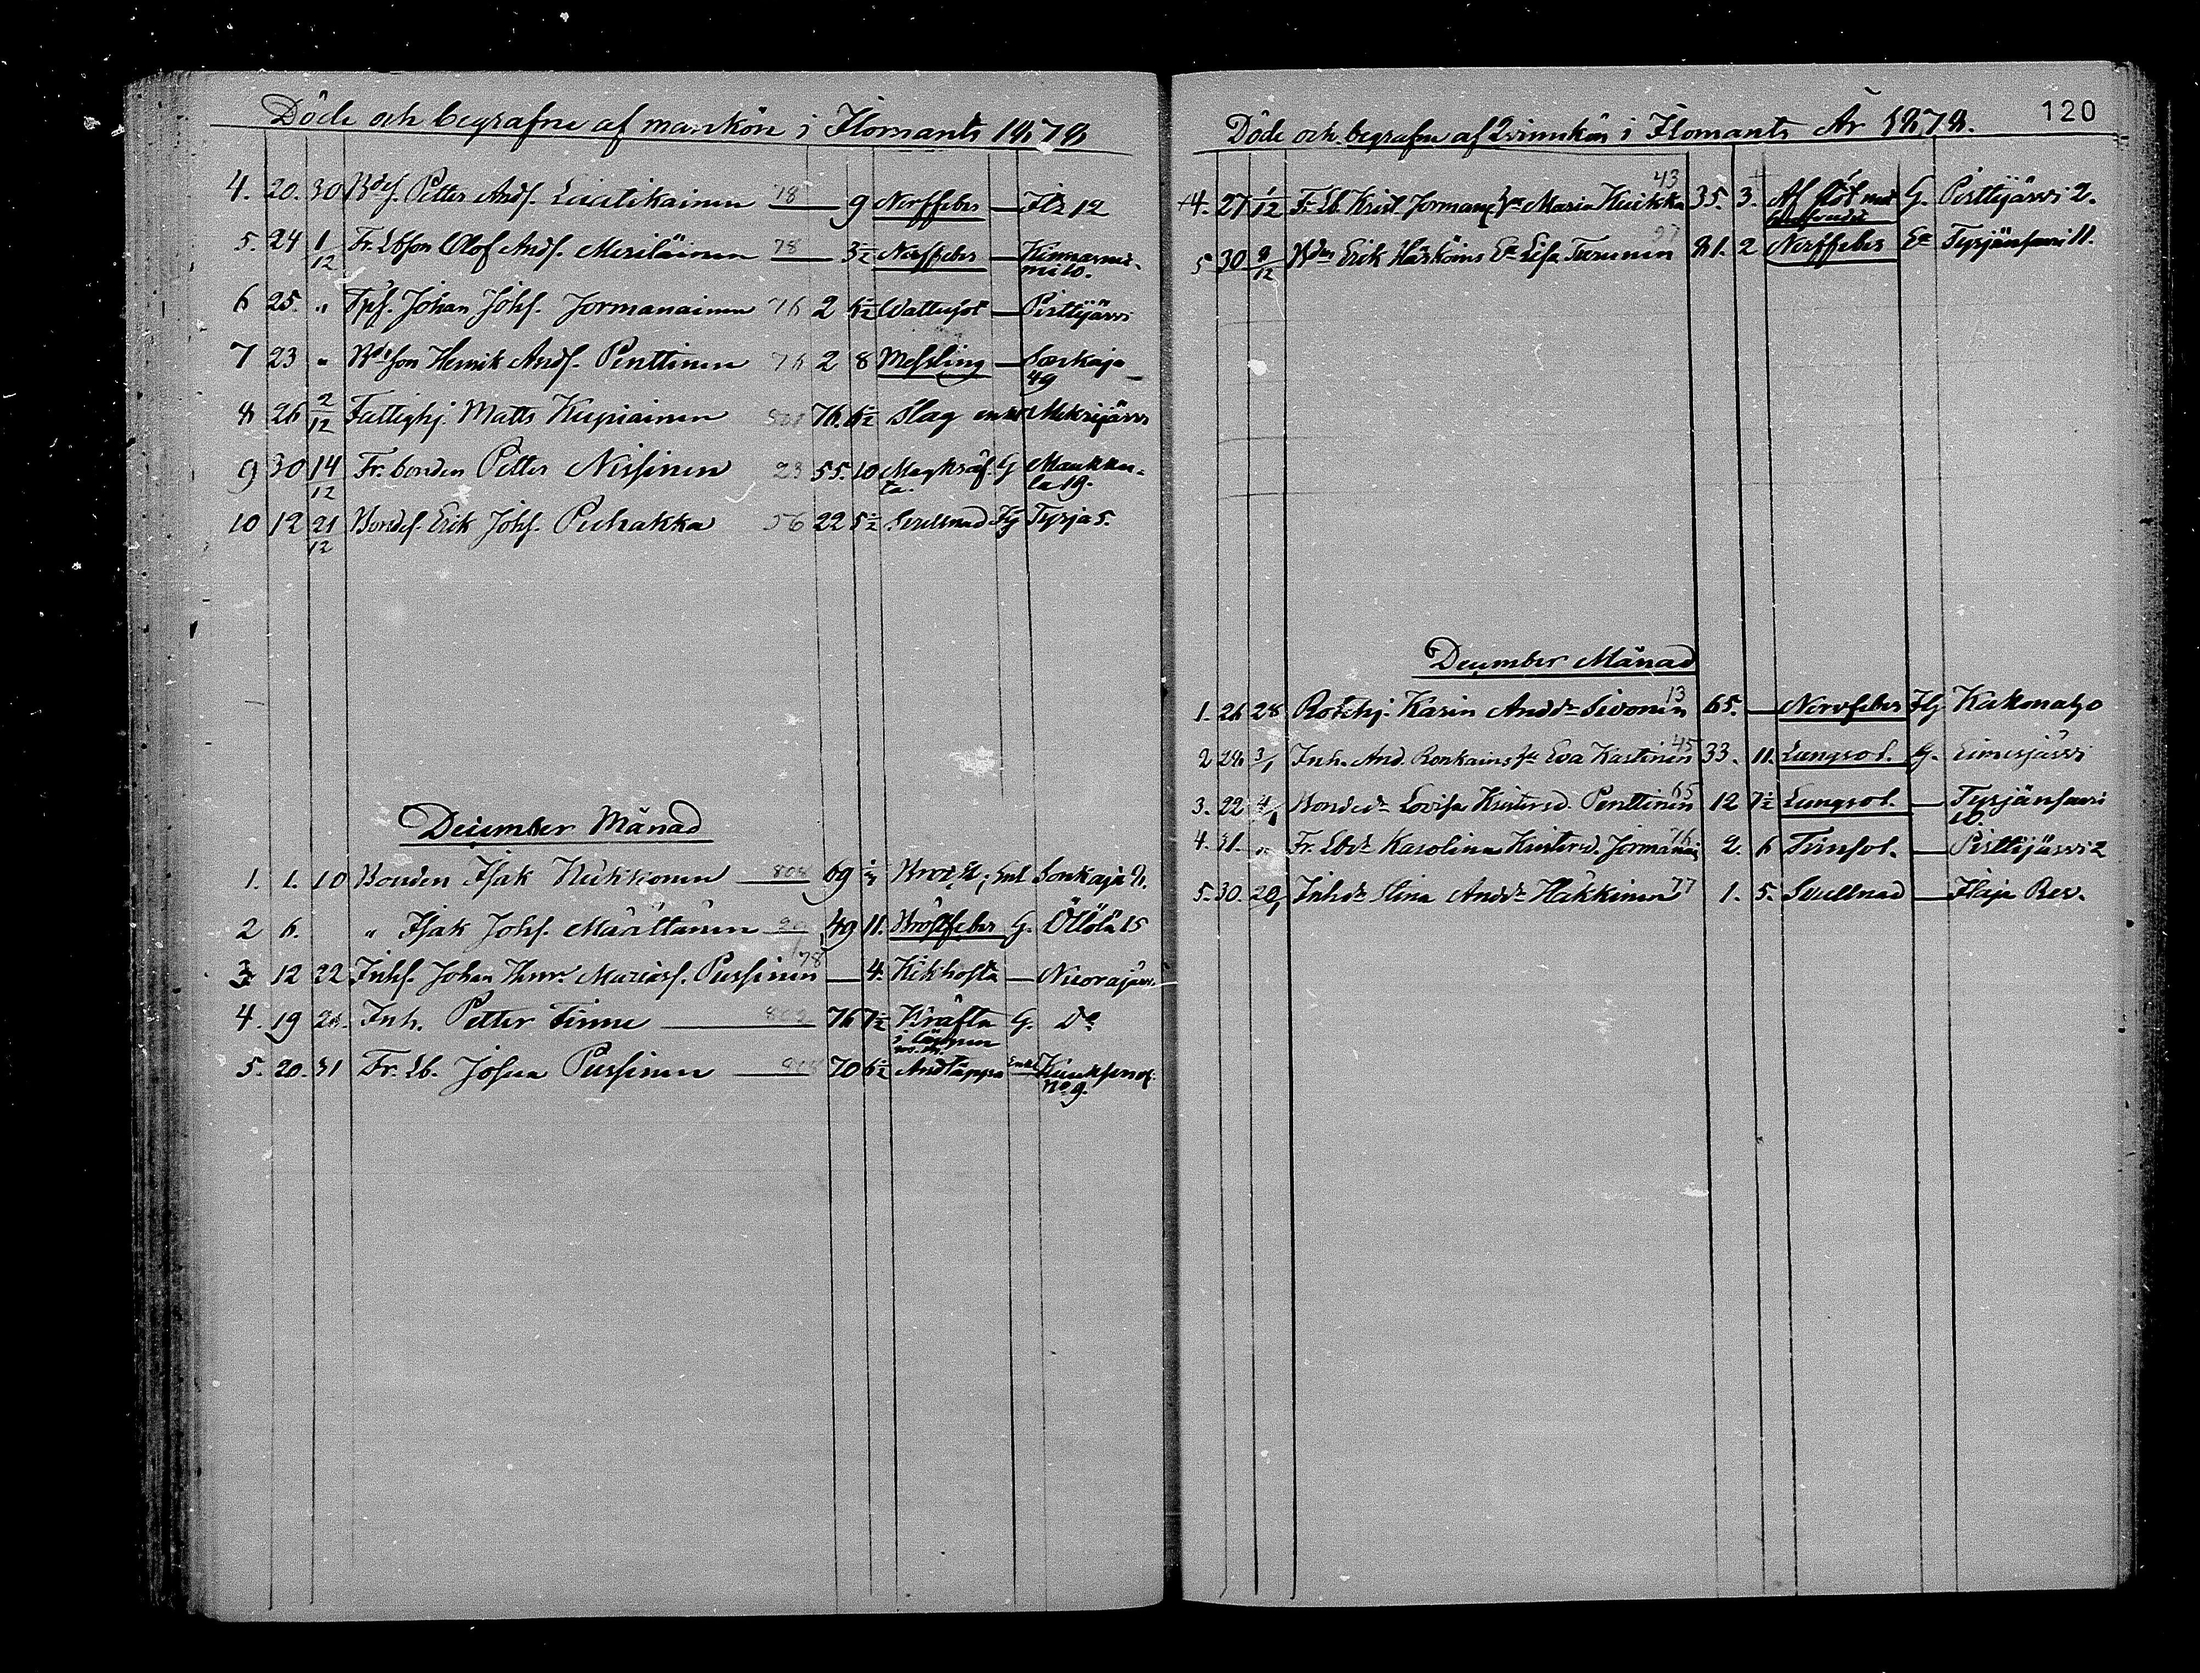 Döde och begrafne af mankön i Ilomants 1878
4. 20. 30 Bdes. Petter Ands. Liiatikainen 78 — 9 Nerffeber — Itz 12
5. 24 1/12 Fr. Lbson Olof Ands. Meriläinen 78 — 3½ Nerffeber — Kinnasnie-
milo.
6 25. " Tpf. Johan Johs. Jormanainen 76 2 6½ Wattusot — Pisttijärvi
7 23 " Bdeson Henrik Ands. Penttinen 76 2 8 Messling — Sonkaja
49
8 26 2/12 Fattighj. Matts Kupiainen 76. 6½ Slag enkl Mekrijärvi
9 30 14/12 Fr. bonden Petter Nissinen 23 55. 10 Magkräf- G Maukku-
ta. la 19.
10 12 21/12 Bondes. Erik Johs. Puhakka 56 22 5½ Svullnad Hj Tyrja 5.
December Månad
1. 1. 10 Bonden Isak Kukkonen 69 Enl Sonkaja 8.
2 6. " Isak Johs. Määttänen 49 11. Bröstfeber G. Öllölä 15
3 12 22 Inhs. Johan Henr. Mariass. Pussinen 78 — 4. Kikhosta — Nuorajärvi
4. 19 26. Inh. Petter Tinne 76 7½ Kräfta G. Do
i läppen
5. 20. 31 Fr. Lb. Johan Pussinen 70 6½ Andtäppa Enkl
No 9.
120
Döde och begrafne af Qvinnkön i Ilomants År 1878.
4. 27 1/12 Fr. Lb. Krist. Jorman: hu Maria Kuikka 43 35. 3. Af stöt med G. Pisttijärvi 2.
5 30 8/12 Bden Erik Härköins Ea Lisa Turunen 97 81. 2 Nerffeber Ea Tyrjänsaari 11.
December Månad
1. 26 28 Rotehj. Karin Andsdr Sivonen 13 65. — Nervfeber Hj Kakonaho
2 28 3/1 Inh. And. Ronkains hu Eva Kastinen 45 33. 11. Lungsot. G. Liusjärvi
3. 22 4/1 Bondedr Lovisa Kristersd. Penttinen 65 12 7½ Lungsot. — Tyrjänsaari
10.
4. 31. " Fr. Lbdr Karolina Kristersd. Jormanai 76 2. 6 Tvinsot. — Pisttijärvi 2
5. 30. 20/1 Inhdr Stina Andsdr Häkkinen 77 1. 5. Svullnad — Ilaja Res.